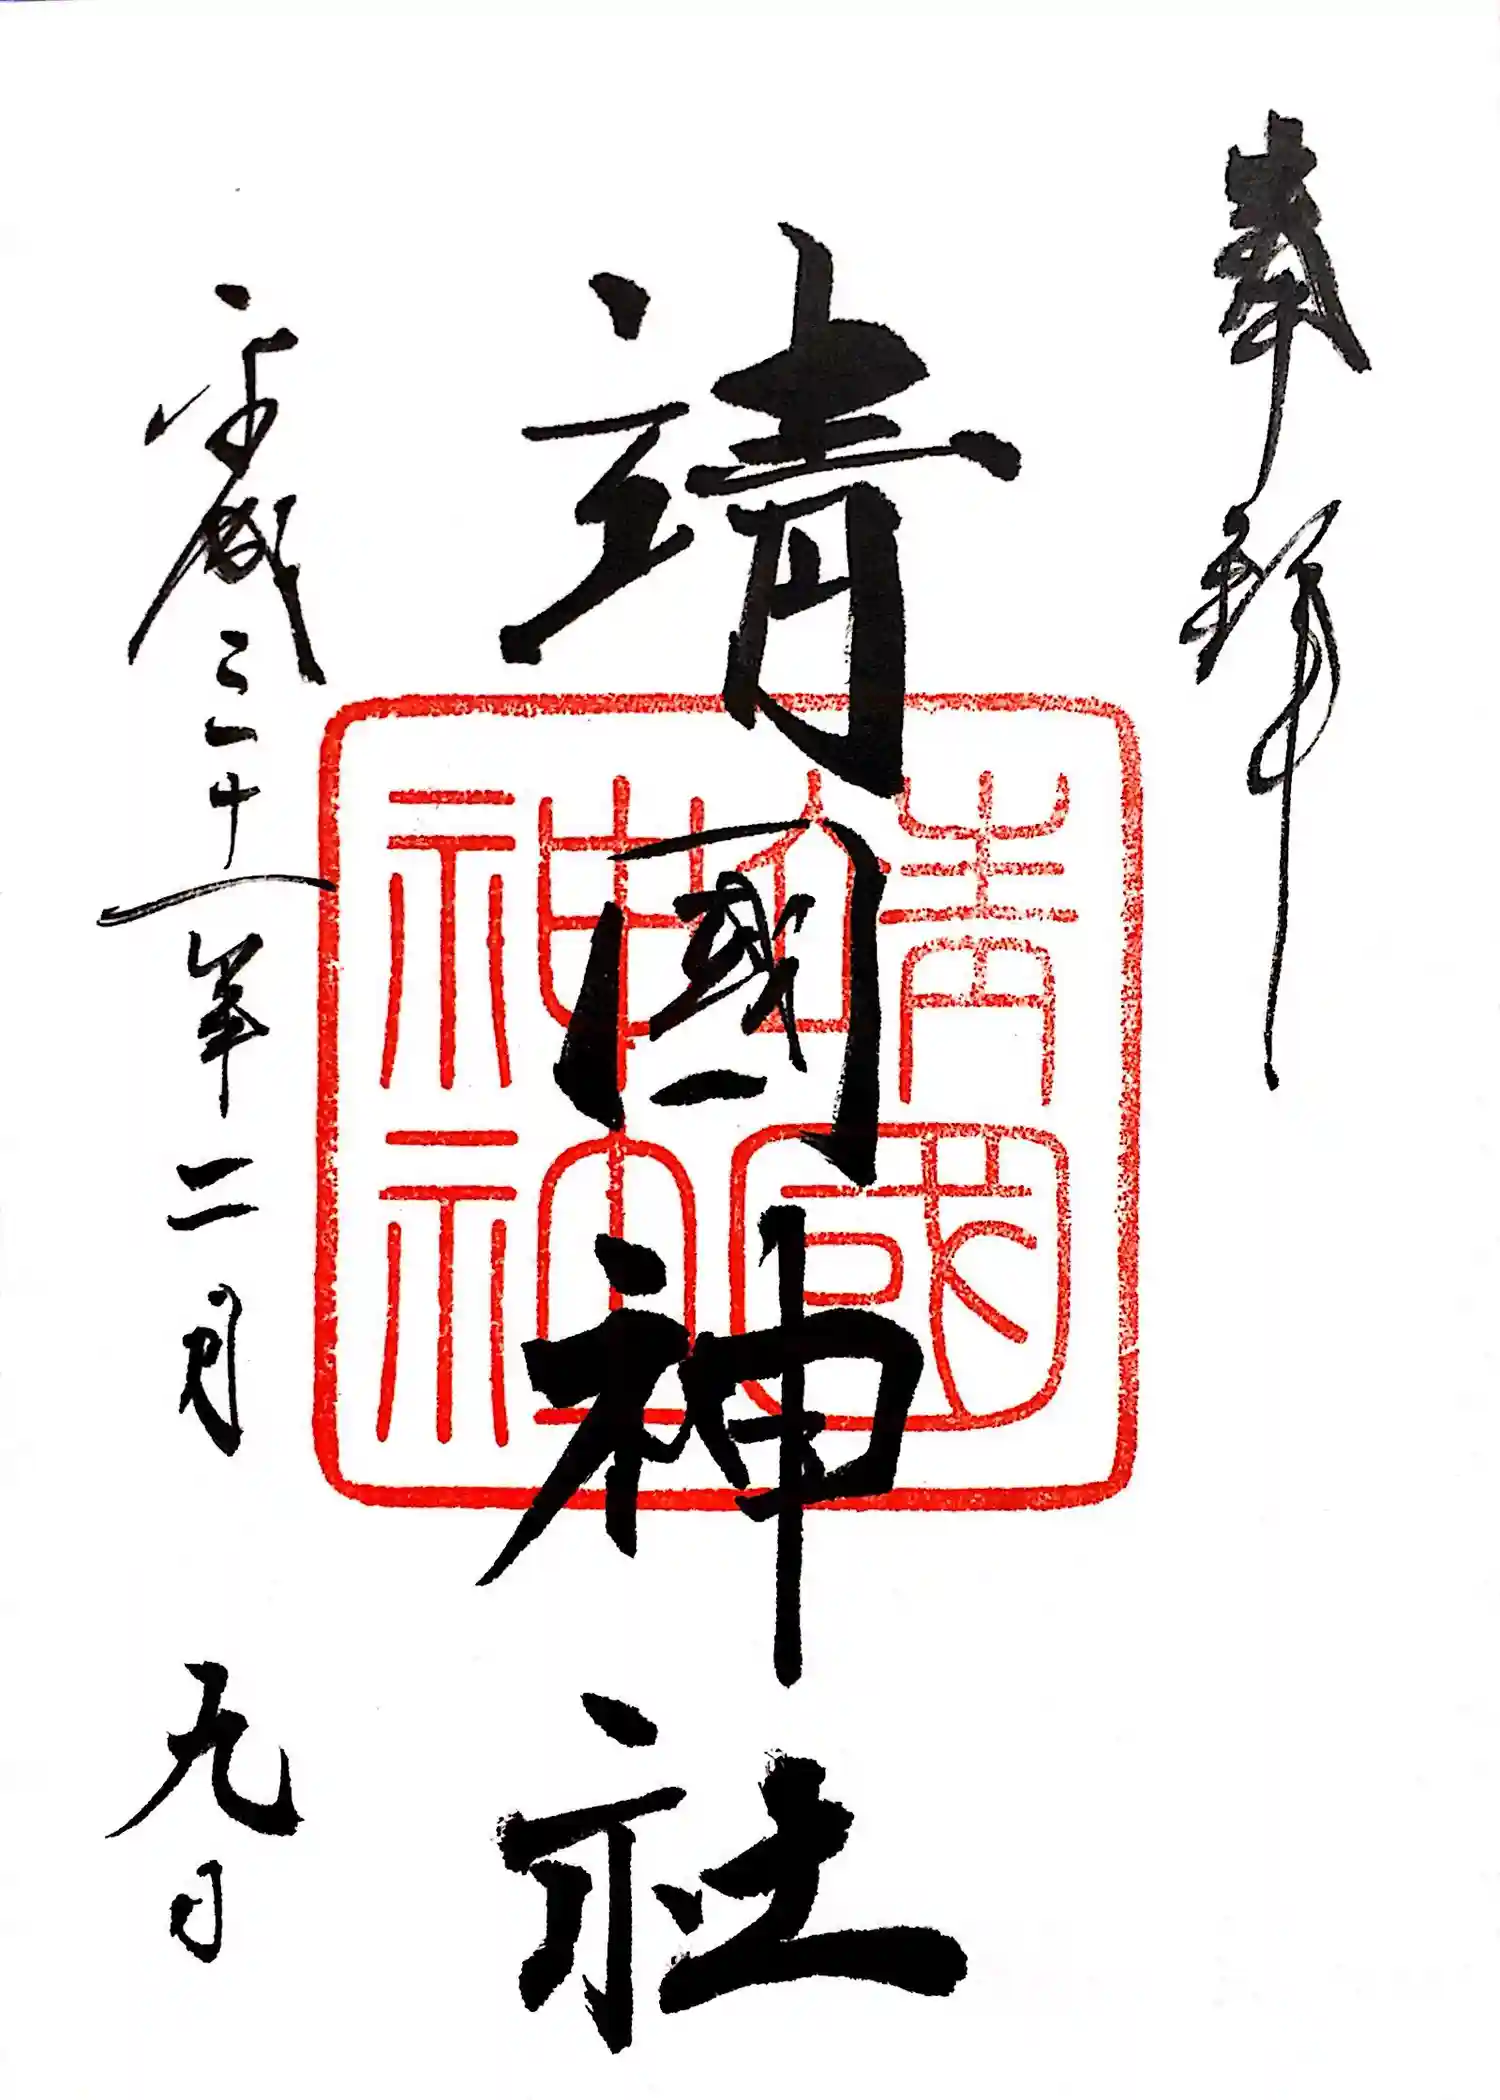 奉拝
靖國神社
平成三十一年二月九日
靖國
神社